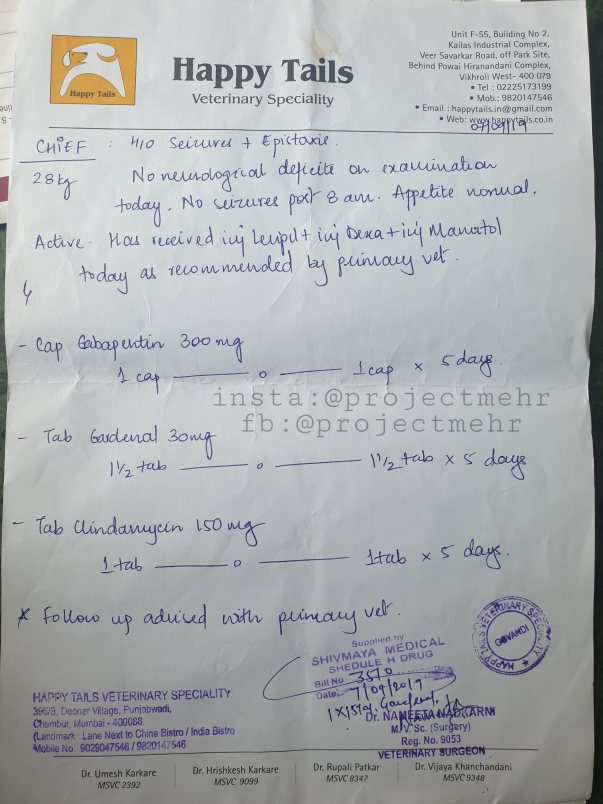 Happy Tails
Happy Tails
Veterinary Speciality
Unit F-55, Building No 2,
Kailas Industrial Complex,
Veer Savarkar Road, off Park Site,
Behind Powai Hiranandani Complex,
Vikhroli West- 400 079
• Tel : 02225173199
• Mob.: 9820147546
• Email : happytails.in@gmail.com
• Web: www.happytails.co.in
07/09/19
CHIEF : H/O Seizures + Epistaxis.
28kg No neurological deficits on examination
today. No seizures post 8 am. Appetite normal.
Active. Has received inj Levipil + inj Dexa + inj Manatol
today as recommended by primary vet.
- Cap Gabapentin 300mg
1 cap — o — 1 cap × 5 days
insta:@projectmehr
fb:@projectmehr
- Tab Gardenal 30mg
1 1/2 tab — o — 1 1/2 tab × 5 days
- Tab Clindamycin 150mg
1 tab — o — 1 tab × 5 days.
* Follow up advised with primary vet.
Supplied by
SHIVMAYA MEDICAL
SHEDULE H DRUG
Bill No 3570
Date:- 7/09/2019
HAPPY TAILS VETERINARY SPECIALITY
GOVANDI
HAPPY TAILS VETERINARY SPECIALITY
396/B, Deonar Village, Punjabwadi,
Chembur, Mumbai - 400088.
(Landmark: Lane Next to China Bistro / India Bistro
Mobile No. 9029047546 / 9820147546
Dr. NAMEETA NADKARNI
M.V. Sc. (Surgery)
Reg. No. 9053
VETERINARY SURGEON
Dr. Umesh Karkare
MSVC 2392
Dr. Hrishkesh Karkare
MSVC 9099
Dr. Rupali Patkar
MSVC 8347
Dr. Vijaya Khanchandani
MSVC 9348